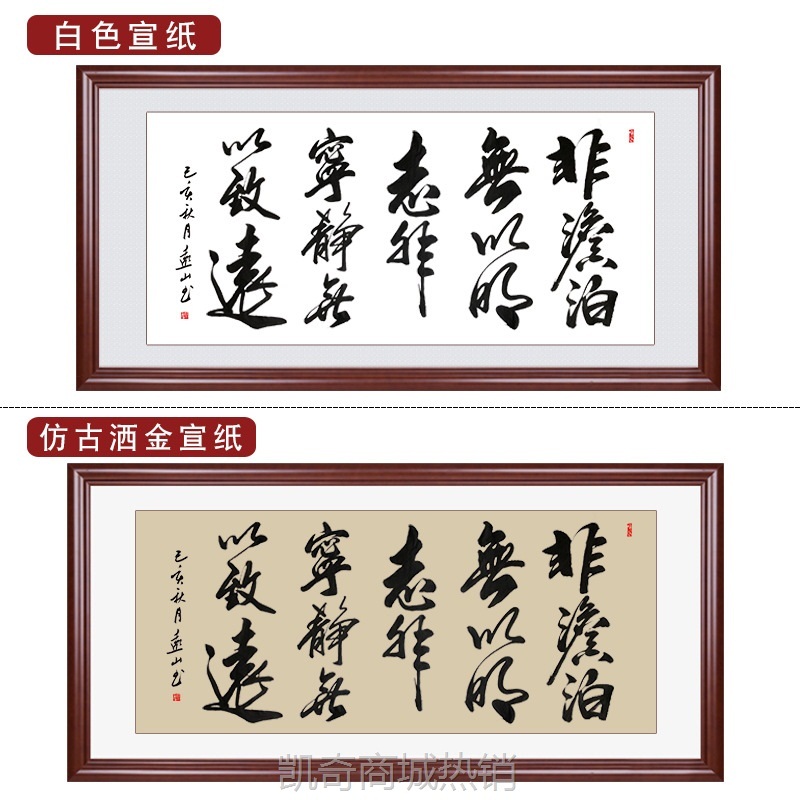 白色宣纸
非澹泊
無以明
志非
寧静無
以致遠
己亥秋月遠山书
仿古洒金宣纸
非澹泊
無以明
志非
寧静無
以致遠
己亥秋月遠山书
凯奇商城热销